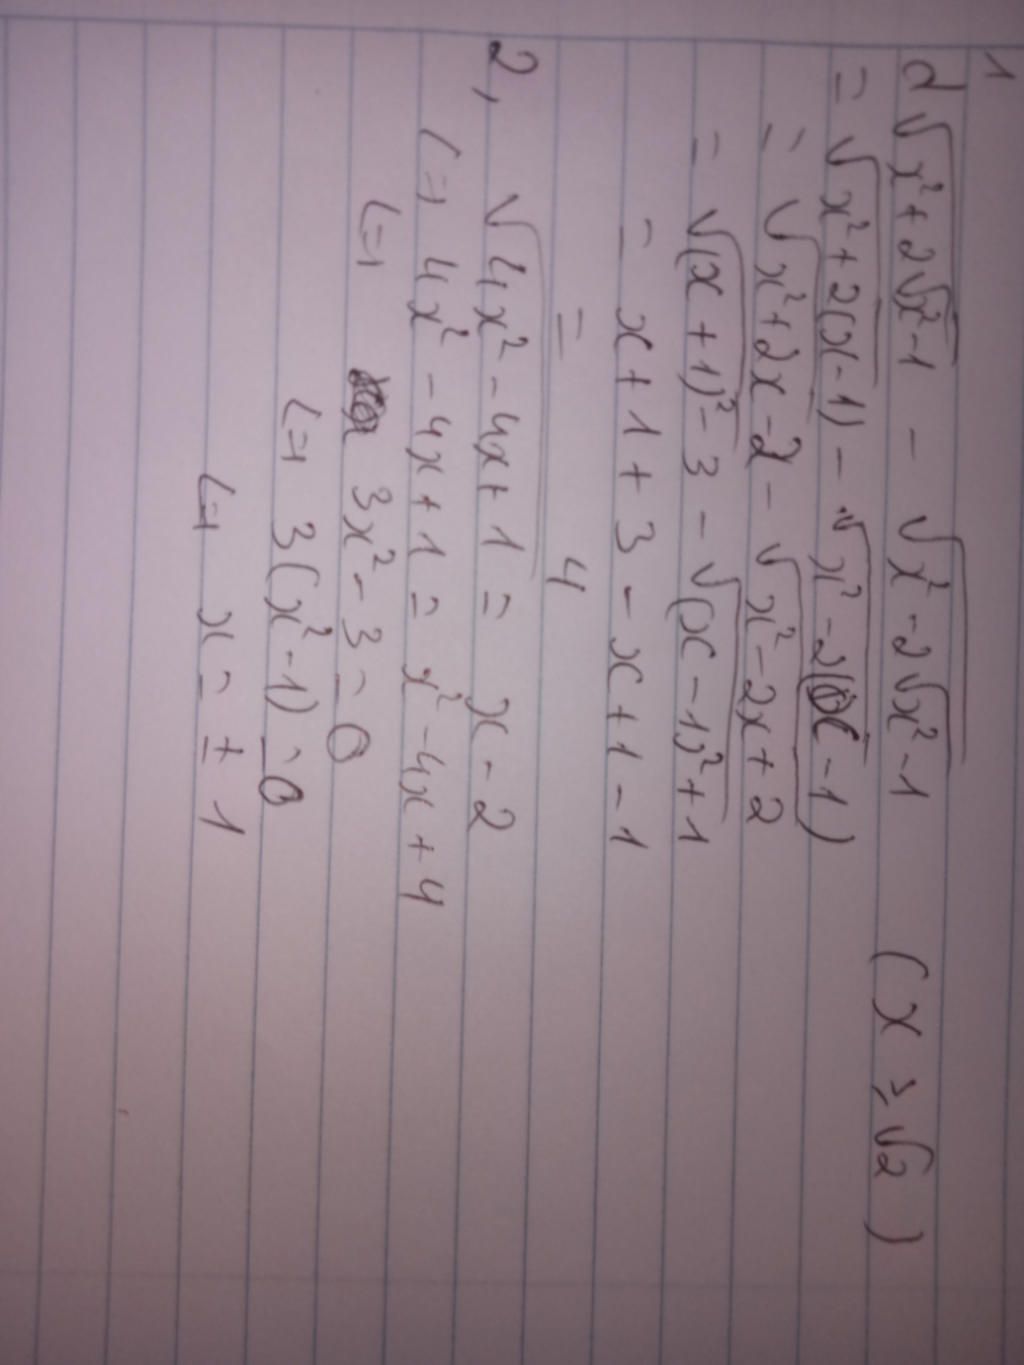 1
d √(x² + 2√(x² - 1)) - √(x² - 2√(x² - 1)) (x ≥ √2)
= √(x² + 2(x - 1)) - √(x² - 2(x - 1))
= √(x² + 2x - 2) - √(x² - 2x + 2)
= √((x + 1)² - 3) - √((x - 1)² + 1)
= x + 1 + 3 - x + 1 - 1
= 4
2, √(4x² - 4x + 1) = x - 2
<=> 4x² - 4x + 1 = x² - 4x + 4
<=> 3x² - 3 = 0
<=> 3(x² - 1) = 0
<=> x = ± 1